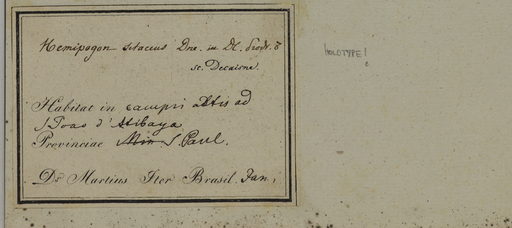 Hemipogon setaceus Dne. in DC. Prodr. 8
sc. Decaisne.
HOLOTYPE!
Habitat in campis altis ad
S. Joao d' Atibaya
Provinciae Min S. Paul.
Dr Martius Iter Brasil. Jan.